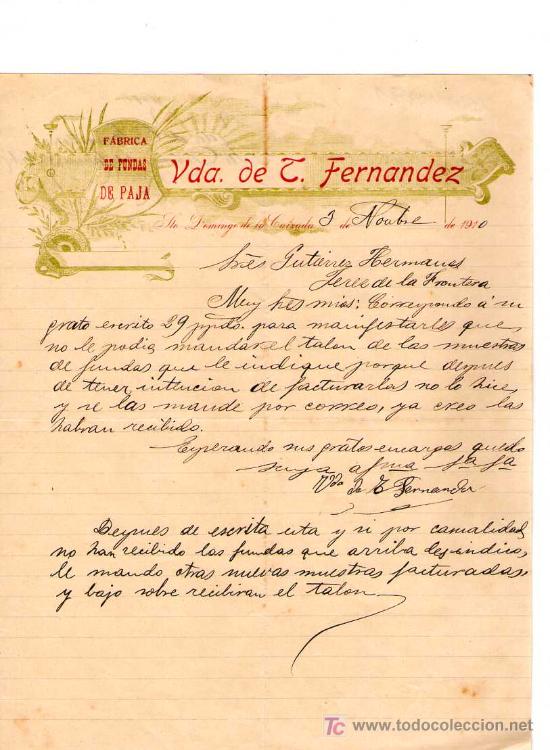 FÁBRICA
DE FUNDAS
DE PAJA
Vda. de T. Fernandez
Sto. Domingo de la Calzada 3 de Novbre de 1910
Sres Gutiérrez Hermanos
Jerez de la Frontera
Muy Sres mios: Correspondo á su
grato escrito 29 ppdo. para manifestarles que
no le podia mandar el talon de las muestras
de fundas que le indique porque depues
de tener intucion de facturarlas no lo hice
y se las mande por correo, ya creo las
habran recibido.
Esperando sus gratos encargos quedo
suya afma S.S.S.
Vda de T Fernandez
Depues de escrita esta y si por casualidad
no han recibido las fundas que arriba les indico,
le mando otras nuevas muestras facturadas,
y bajo sobre recibiran el talon
todocoleccion
TC
www.todocoleccion.net